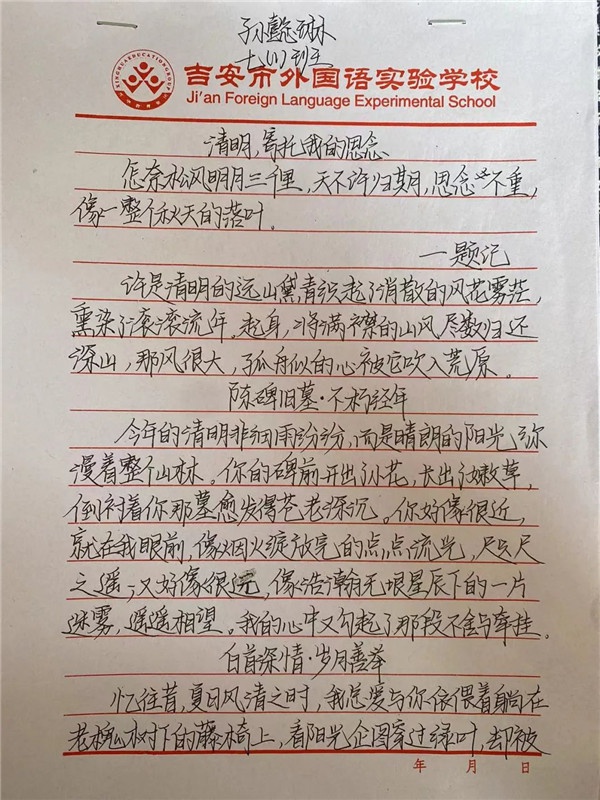 孙懿琳
七(1)班
吉安市外国语实验学校
Ji'an Foreign Language Experimental School
清明,寄托我的思念
怎奈松风明月三千里,天不许归期,思念不重,
像一整个秋天的落叶。
一题记
许是清明的远山黛青织起了消散的风花雾茫,
熏染了滚滚流年。起身,将满襟的山风尽数归还
深山,那风很大,孤舟似的心被它吹入荒原。
陈碑旧墓·不朽经年
今年的清明非细雨纷纷,而是晴朗的阳光弥
漫着整个山林。你的碑前开出小花,长出嫩草,
倒衬着你那墓愈发得苍老深沉。你好像很近,
就在我眼前,像烟火绽放完的点点流光,咫尺
之遥;又好像很远,像浩瀚无垠星辰下的一片
迷雾,遥遥相望。我的心中又勾起了那段不舍与牵挂。
白首深情·岁月善举
忆往昔,夏日风清之时,我总爱与你依偎着躺在
老槐树下的藤椅上,看阳光企图穿过绿叶,却被
年 月 日